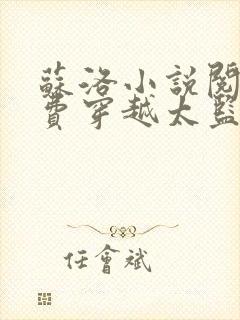 蘇洛小說閱
費穿越太監
任會斌